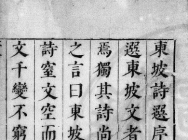 東坡詩選序
選東坡文者
焉獨其詩尚
之言曰東坡
詩窒文空而
文千變不窮